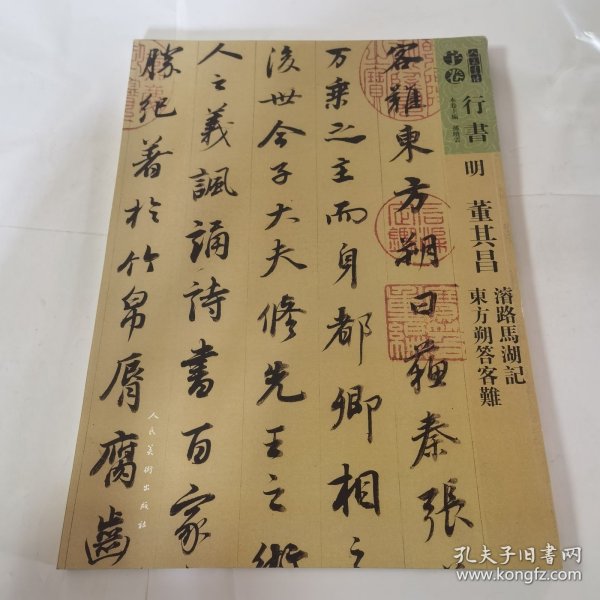 客難東方朔曰蘇秦張
万乘之主而身都卿相之
後世今子大夫修先王之術
人之義諷誦詩書百家
勝紀著於竹帛脣腐齒
行書
明
董其昌
濬路馬湖記
東方朔答客難
人民美術出版社
孔夫子旧书网
www.kongfz.com